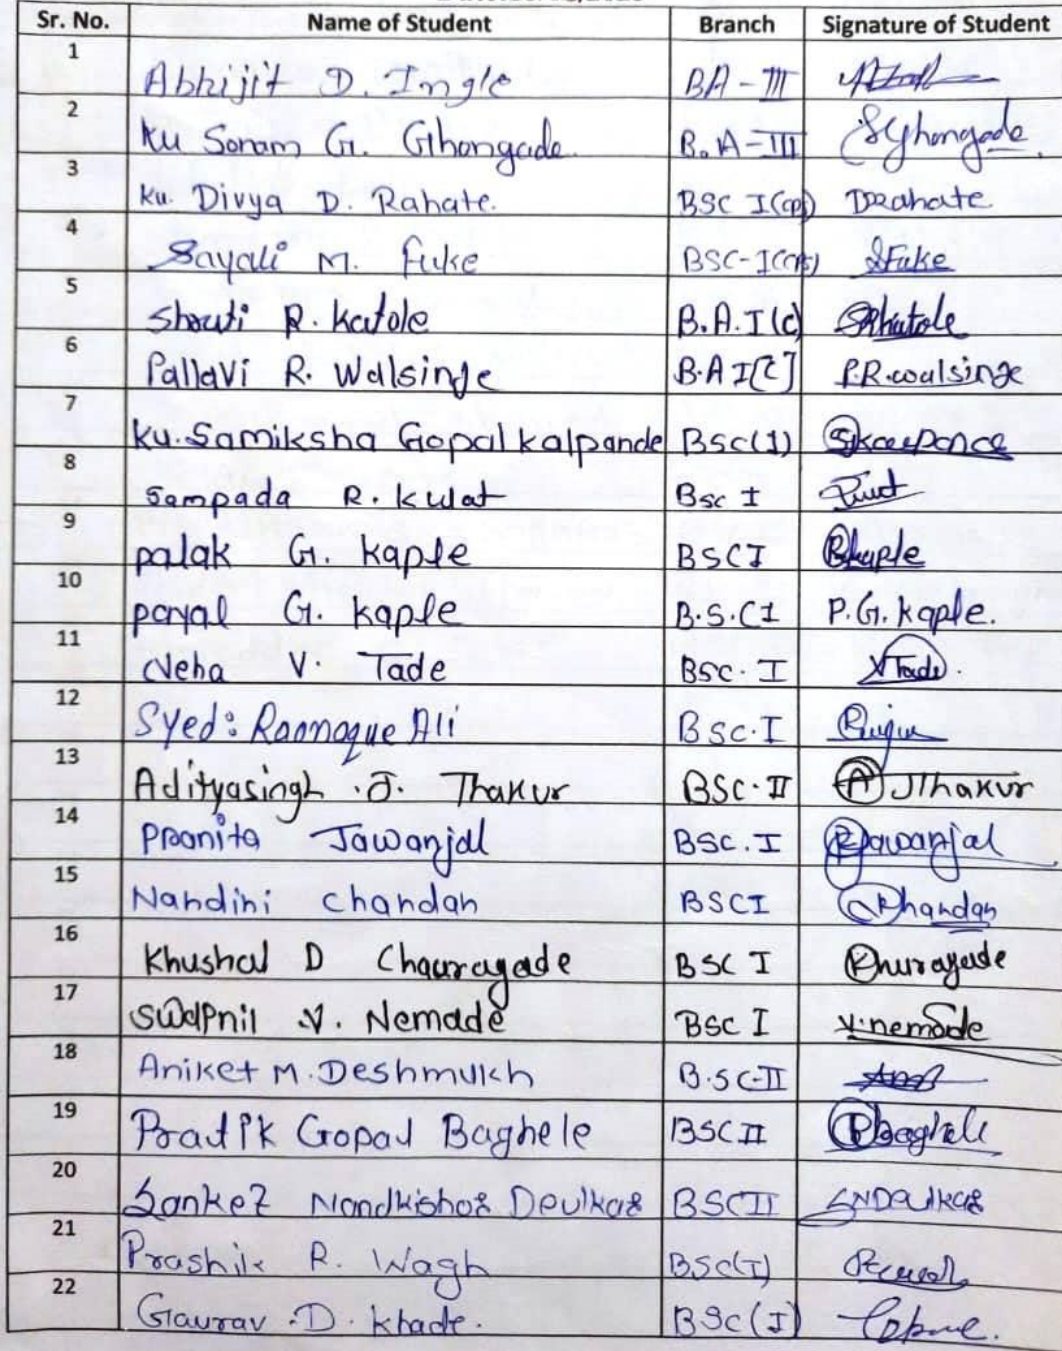 Sr. No. Name of Student Branch Signature of Student
1 Abhijit D. Ingle BA - III
2 Ku Sonam G. Ghongade. B.A-III SGhongade.
3 Ku. Divya D. Rahate. BSC I(cps) DRahate
4 Sayali M. Fuke BSC-I(cps) SFuke
5 Shruti R. Katole B.A.I(C) SRkatole
6 Pallavi R. Walsinge B.A I[C] P.R.walsinge
7 Ku. Samiksha Gopal kalpande Bsc(I)
8 Sampada R. Kulat Bsc I
9 palak G. Kaple BSC I PKaple
10 payal G. Kaple B.S.C I P.G. Kaple.
11 Neha V. Tade BSC. I VTade.
12 Syed: Raonaque Ali BSC.I
13 Adityasingh .J. Thakur BSC. II A JThakur
14 Pranita Jawanjal BSC. I PJawanjal
15 Nandini Chandan BSC I Chandan
16 Khushal D Chauragade BSC I
17 Swapnil .V. Nemade BSC I V.nemade
18 Aniket M. Deshmukh B.SC-II
19 Pratik Gopal Baghele BSC II PBaghele
20 Sanket Nandkishor Deulkar BSC II SNDeulkar
21 Prashik R. Wagh BSC(I)
22 Gaurav .D. Khade. BSc (I)